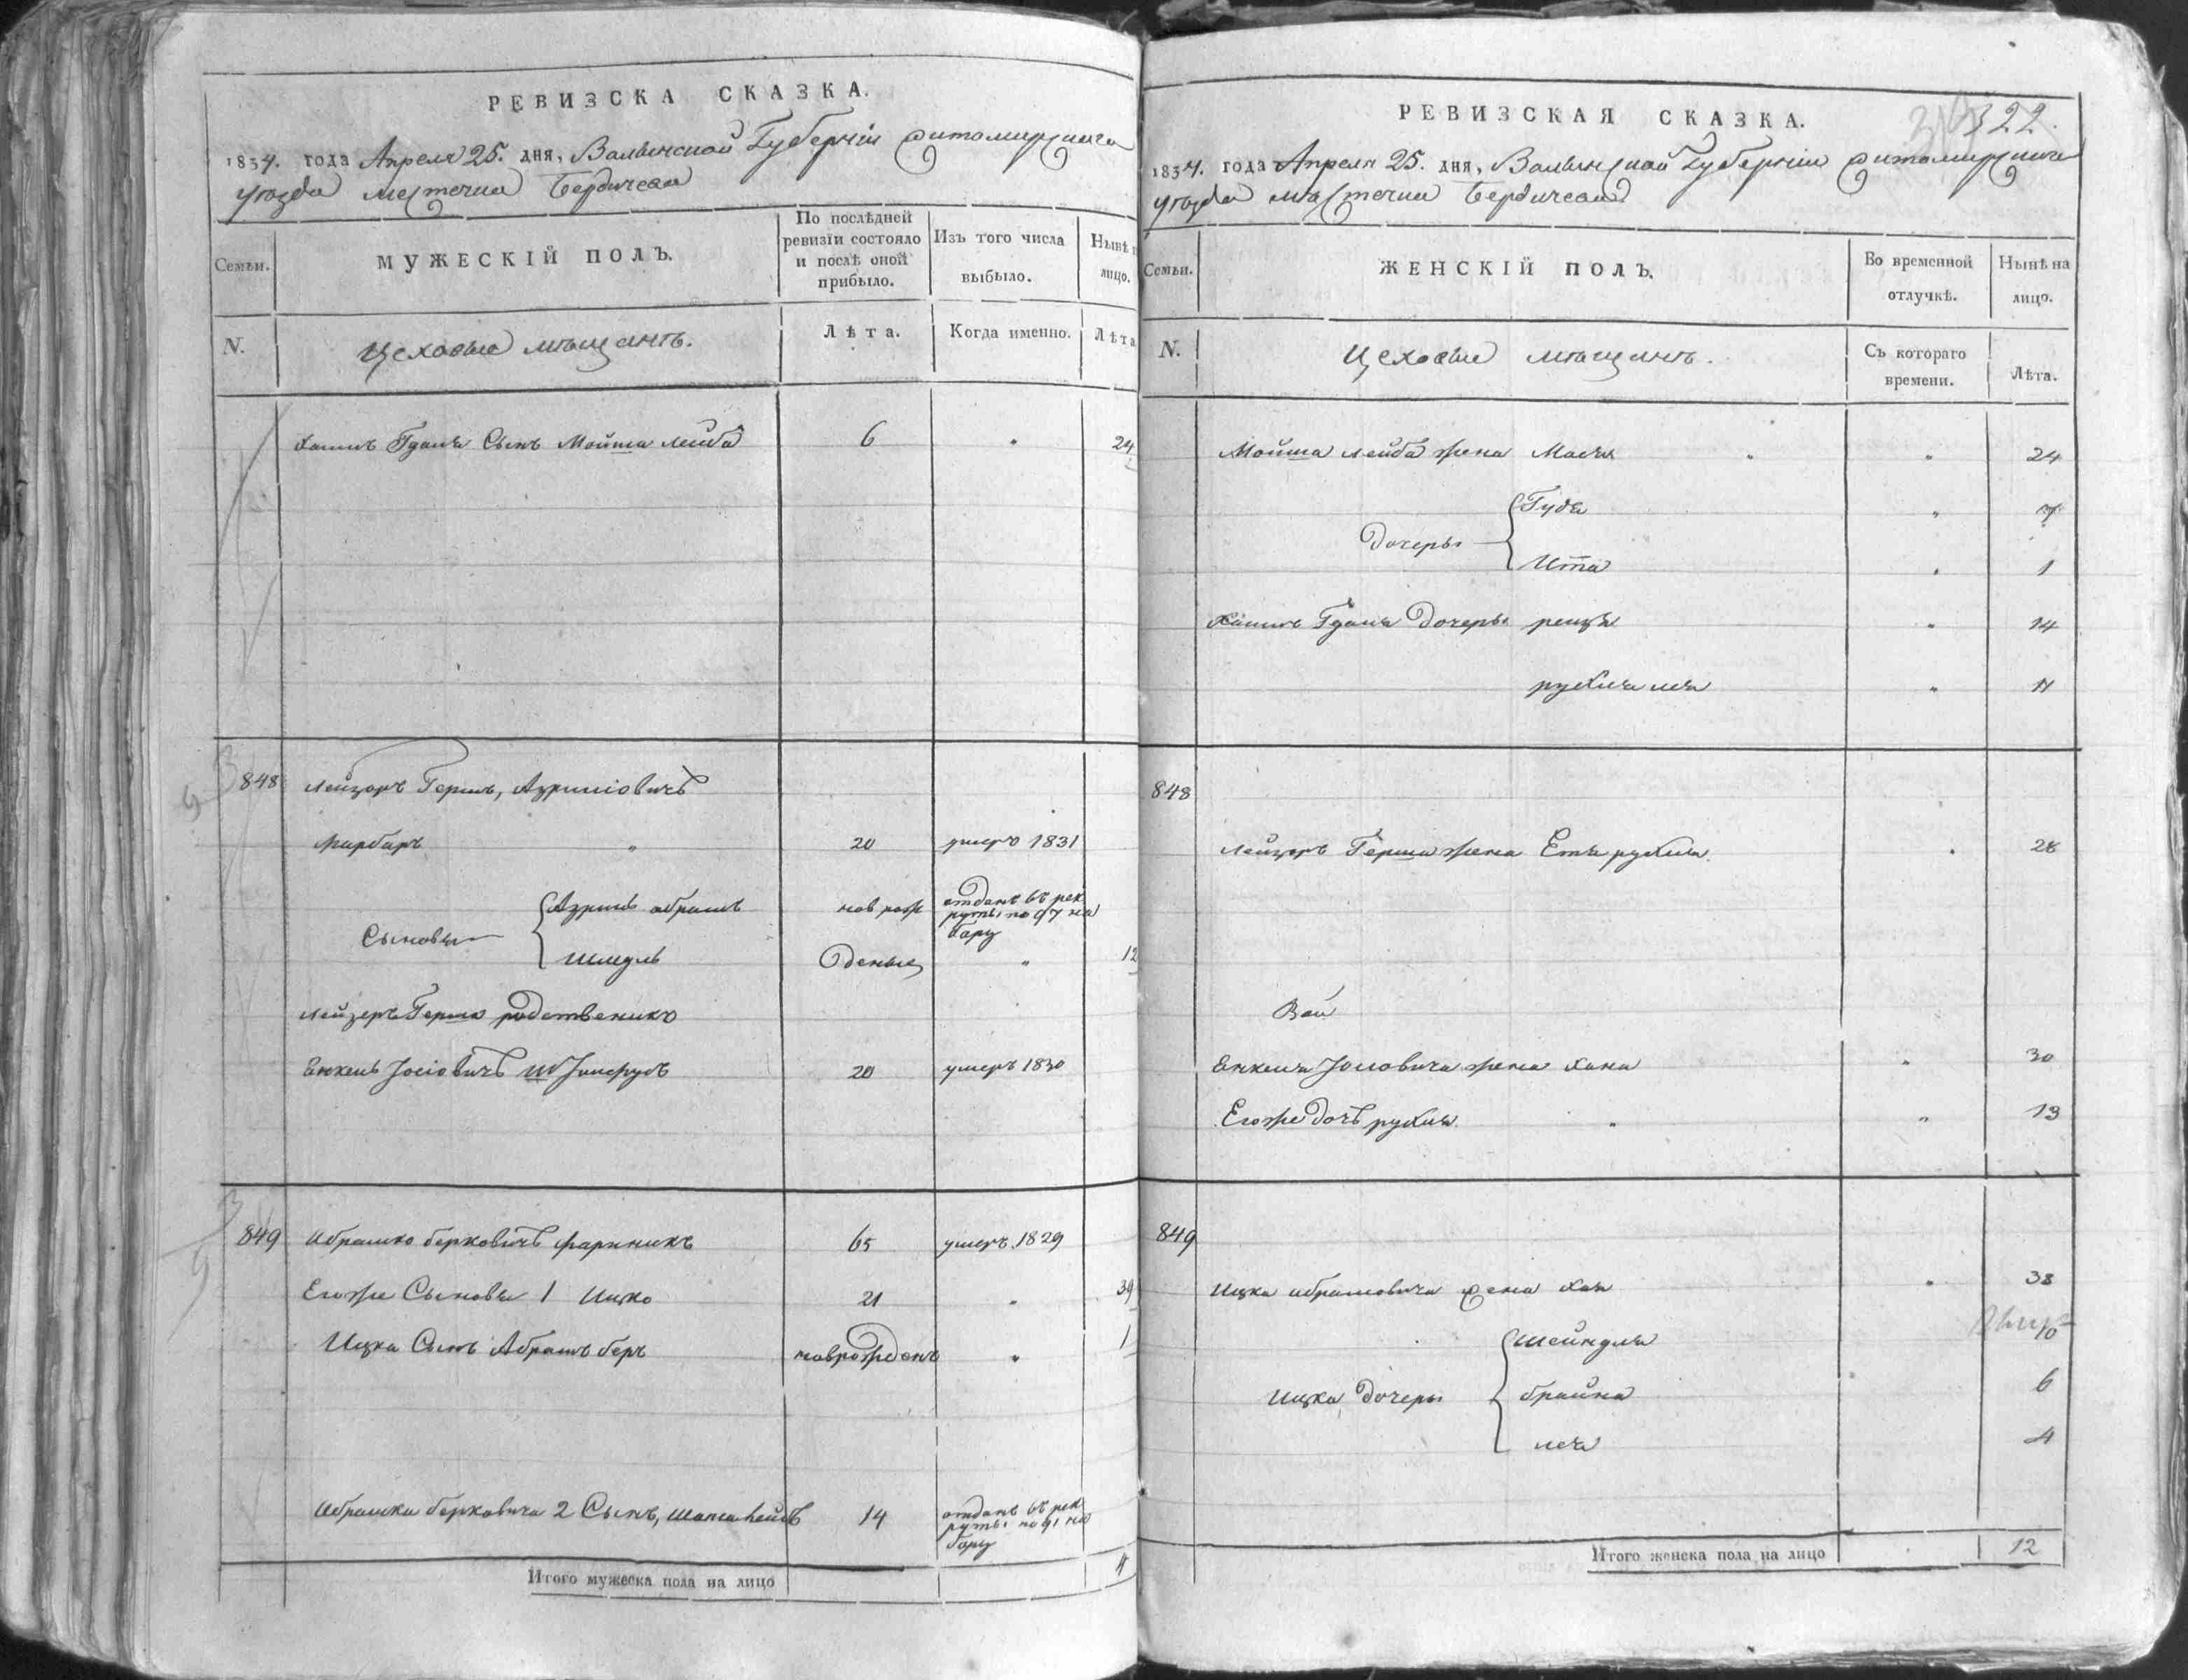 РЕВИЗСКА СКАЗКА.
1834. года Апреля 25. дня, Валынской Губерніи Житомирскага
уезда местечка Бердичева
Семьи.
МУЖЕСКІЙ ПОЛЪ.
По послѣдней
ревизіи состояло
и послѣ оной
прибыло.
Изъ того числа
выбыло.
Нынѣ
лицо.
N.
Цеховые мещанъ.
Лѣта.
Когда именно.
Лѣта
Сынъ Мойша лейба 6 " 24
848 Лейзоръ Гершъ,
20 умеръ 1831
Сыновья
абрамъ нов рож отданъ въ рек
руты по 97 на
бару
Шмуль дены " 12
Лейзеръ Герша родственикъ
Енкель Іосіовичъ 20 умеръ 1830
849 Абрашко берковичъ фарникъ 65 умеръ 1829
Егоже Сыновья 1 Ицко 21 " 39
Ицка Сынъ Абрамъ беръ наврожденъ " 1
Абрашка берковича 2 Сынъ, 14 отданъ въ рек
руты по 91 на
бару
Итого мужеска пола на лицо 4
РЕВИЗСКАЯ СКАЗКА.
322.
1834. года Апреля 25. дня, Валынской Губерніи Житомирскага
уезда местечка Бердичева
Семьи.
ЖЕНСКІЙ ПОЛЪ.
Во временной
отлучкѣ.
Нынѣ на
лицо.
N.
Цеховые мещанъ.
Съ котораго
времени.
Лѣта.
Мойша лейба жена Мася " " 24
Дочеры
Гудя " 7
Ита " 1
Дочеры " 14
" 11
848
Лейзоръ Герша жена рухля " 28
Енкеля Іосиовича жена Хана " 30
Егоже дочъ рухля " " 13
849
Ицка абрамовича жена Хая " 38
Ицка дочеры
Шейндля 10
брайна 6
лея 4
Итого женска пола на лицо 12